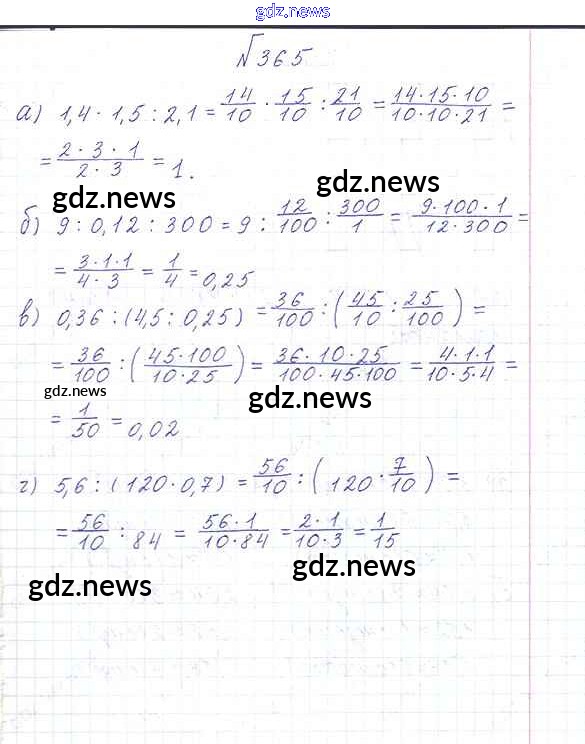 gdz.news
№365
а) 1,4 · 1,5 : 2,1 = 14/10 · 15/10 : 21/10 = 14·15·10/10·10·21 =
= 2·3·1/2·3 = 1.
gdz.news gdz.news
б) 9 : 0,12 : 300 = 9 : 12/100 : 300/1 = 9·100·1/12·300 =
= 3·1·1/4·3 = 1/4 = 0,25
в) 0,36 : (4,5 : 0,25) = 36/100 : (45/10 : 25/100) =
= 36/100 : (45·100/10·25) = 36·10·25/100·45·100 = 4·1·1/10·5·4 =
gdz.news gdz.news
= 1/50 = 0,02
г) 5,6 : (120 · 0,7) = 56/10 : (120 · 7/10) =
= 56/10 : 84 = 56·1/10·84 = 2·1/10·3 = 1/15
gdz.news gdz.news